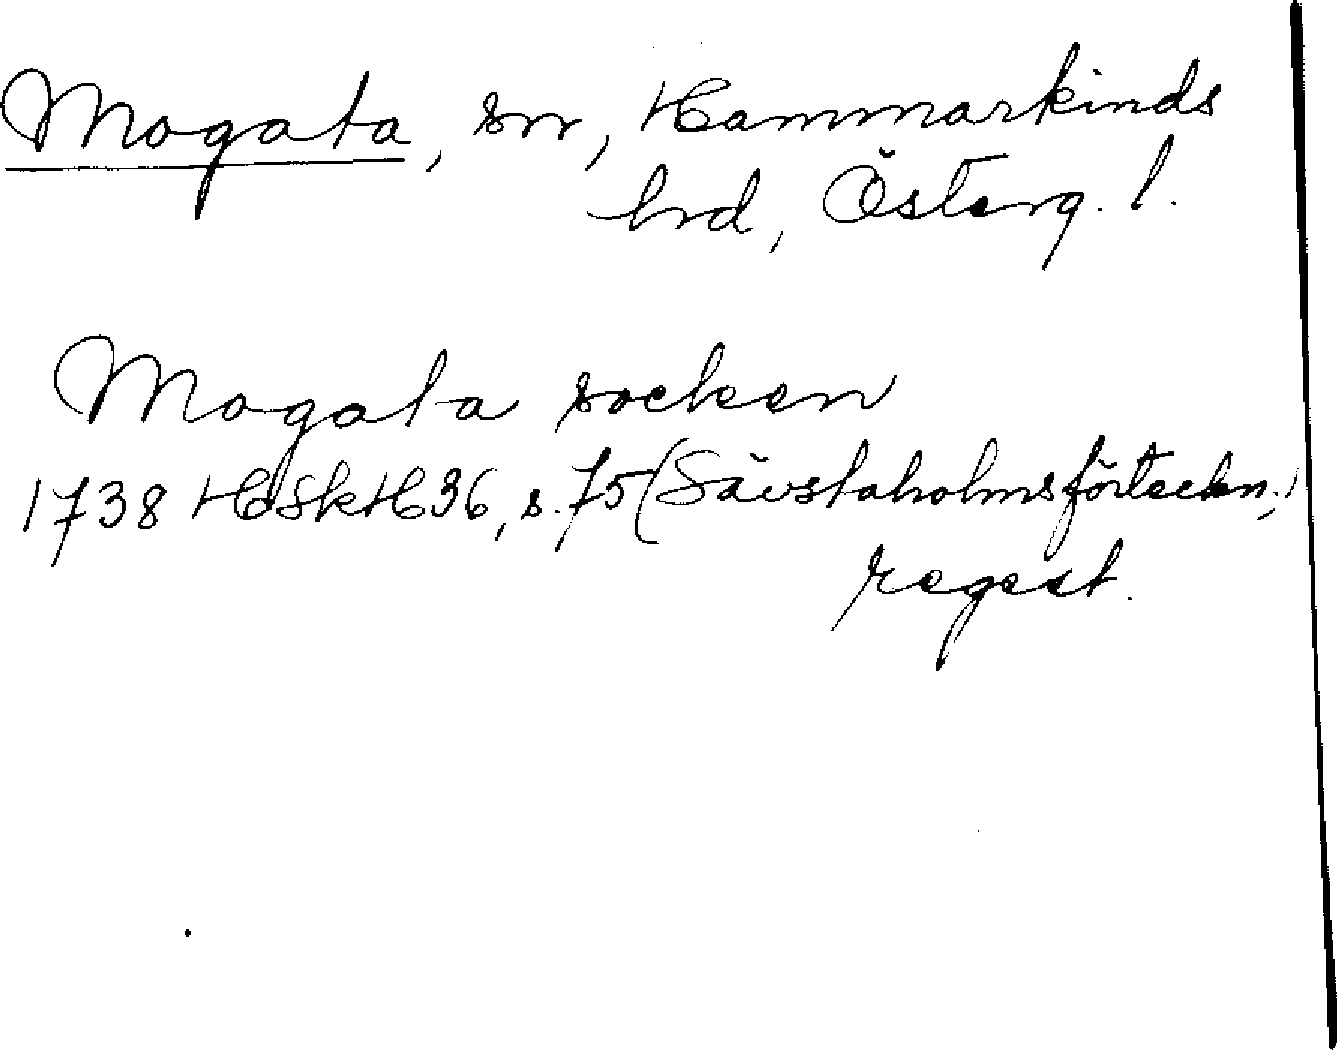 Mogata, sn, Hammarkinds
hrd, Österg. l.
Mogata socken
1738 HSkH36, s. 75 (Sävstaholmsförteckn.)
regest.